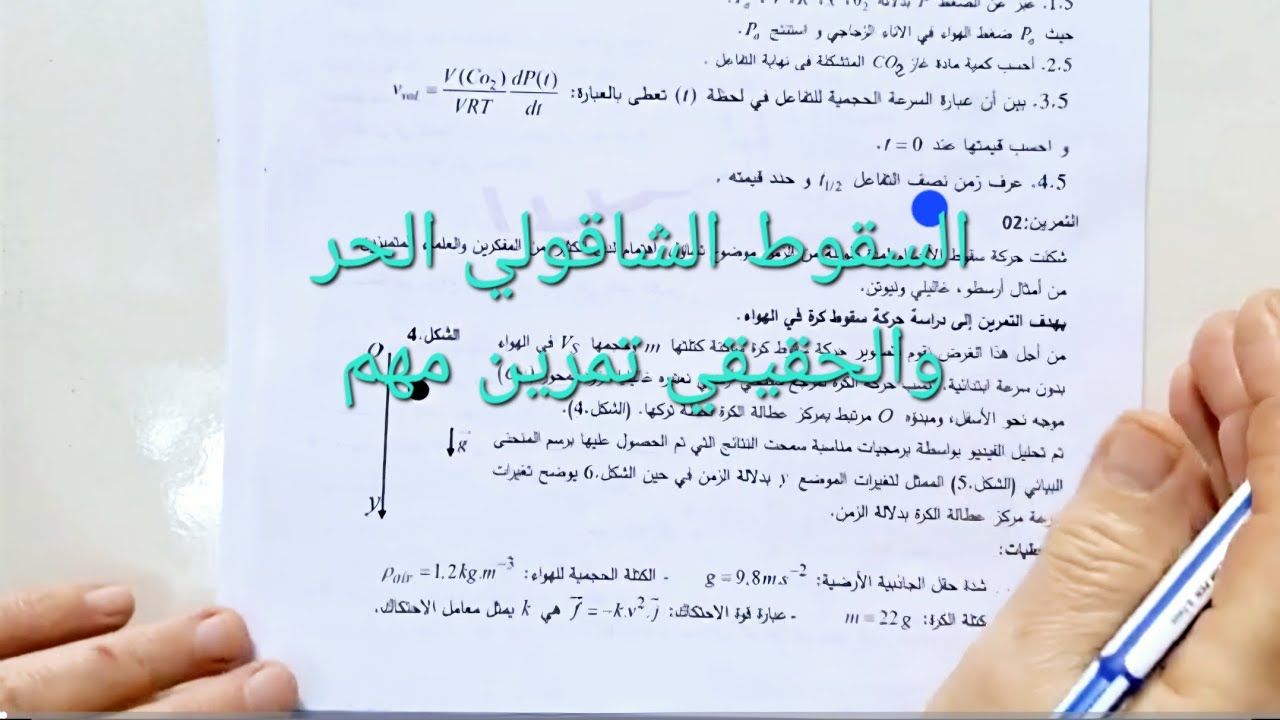 1.5. عبر عن الضغط P بدلالة
حيث P₀ ضغط الهواء في الاناء الزجاجي و استنتج P₀.
2.5. أحسب كمية مادة غاز CO₂ المتشكلة في نهاية التفاعل .
3.5. بين أن عبارة السرعة الحجمية للتفاعل في لحظة (t) تعطى بالعبارة: v_vol = V(Co₂)/VRT dP(t)/dt
و احسب قيمتها عند t = 0.
4.5. عرف زمن نصف التفاعل t₁/₂ و حدد قيمته .
التمرين:02
السقوط الشاقولي الحر
شكلت حركة سقوط من المفكرين والعلماء
من أمثال أرسطو، غاليلي ونيوتن.
يهدف التمرين إلى دراسة حركة سقوط كرة في الهواء.
الشكل.4
والحقيقي تمرين مهم
من أجل هذا الغرض كتلتها m V_S في الهواء
بدون سرعة ابتدائية.
موجه نحو الأسفل، ومبدؤه O مرتبط بمركز عطالة الكرة لحظة تركها. (الشكل.4).
تم تحليل الفيديو بواسطة برمجيات مناسبة سمحت النتائج التي تم الحصول عليها برسم المنحنى
البياني (الشكل.5) الممثل لتغيرات الموضع y بدلالة الزمن في حين الشكل.6 يوضح تغيرات
مركز عطالة الكرة بدلالة الزمن.
O
g
y
شدة حقل الجاذبية الأرضية: g = 9.8m.s⁻² - الكتلة الحجمية للهواء: ρ_air = 1.2kg.m⁻³
كتلة الكرة: m = 22g - عبارة قوة الاحتكاك: f = -k.v².j هي k يمثل معامل الاحتكاك.